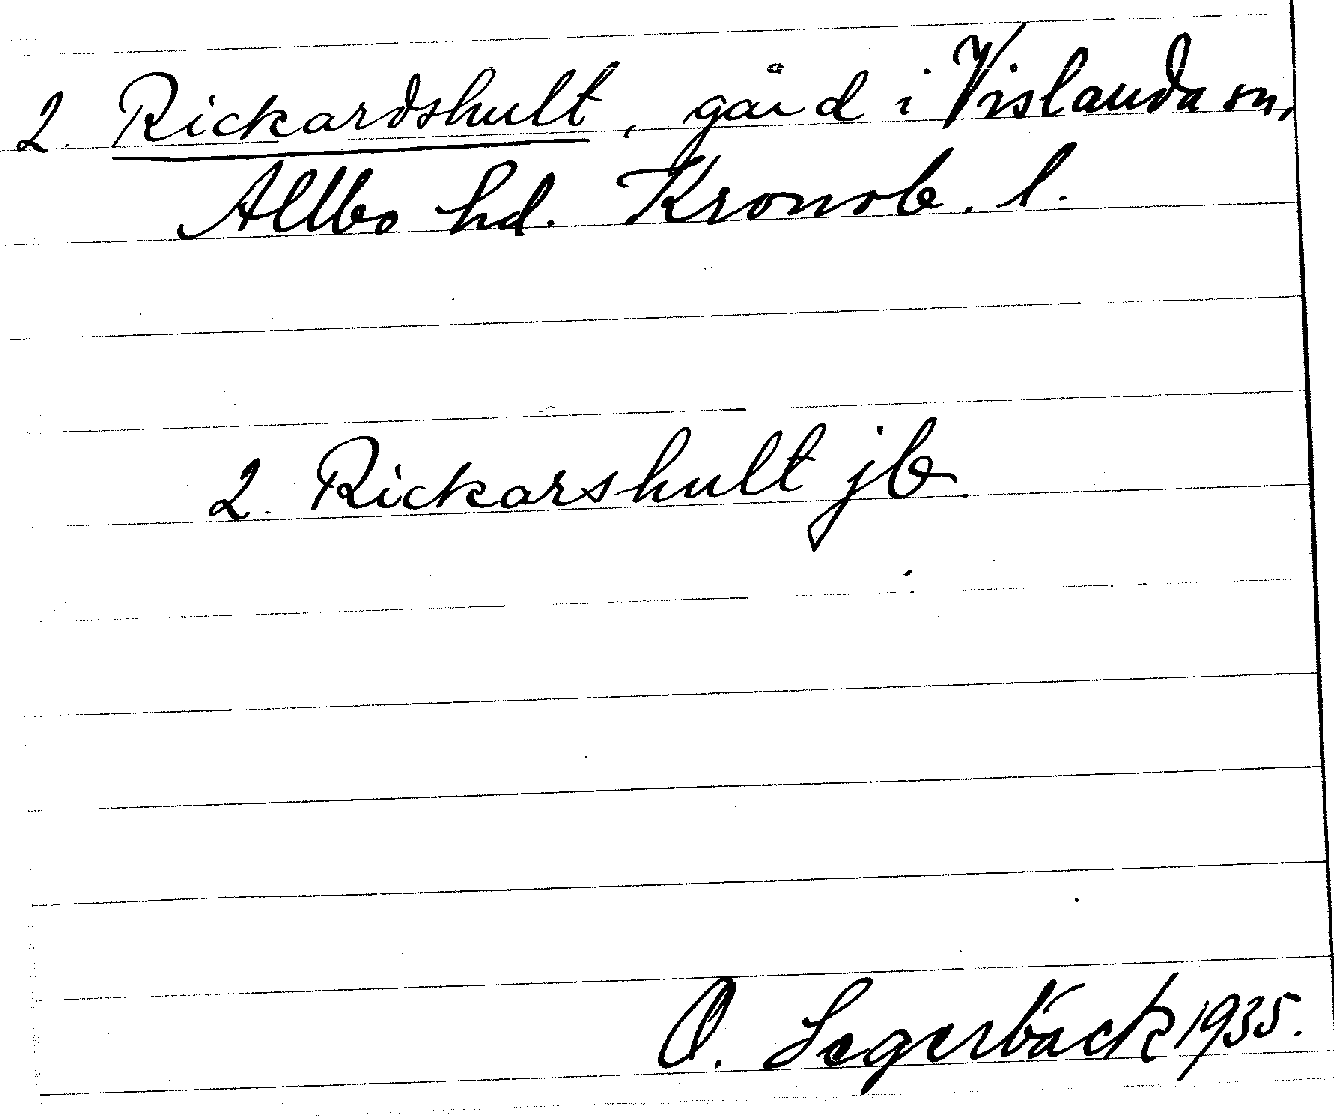 2. Rickardshult, gård i Vislanda sn,
Allbo hd. Kronob. l.
2. Rickarshult jb.
O. Segerbäck 1935.